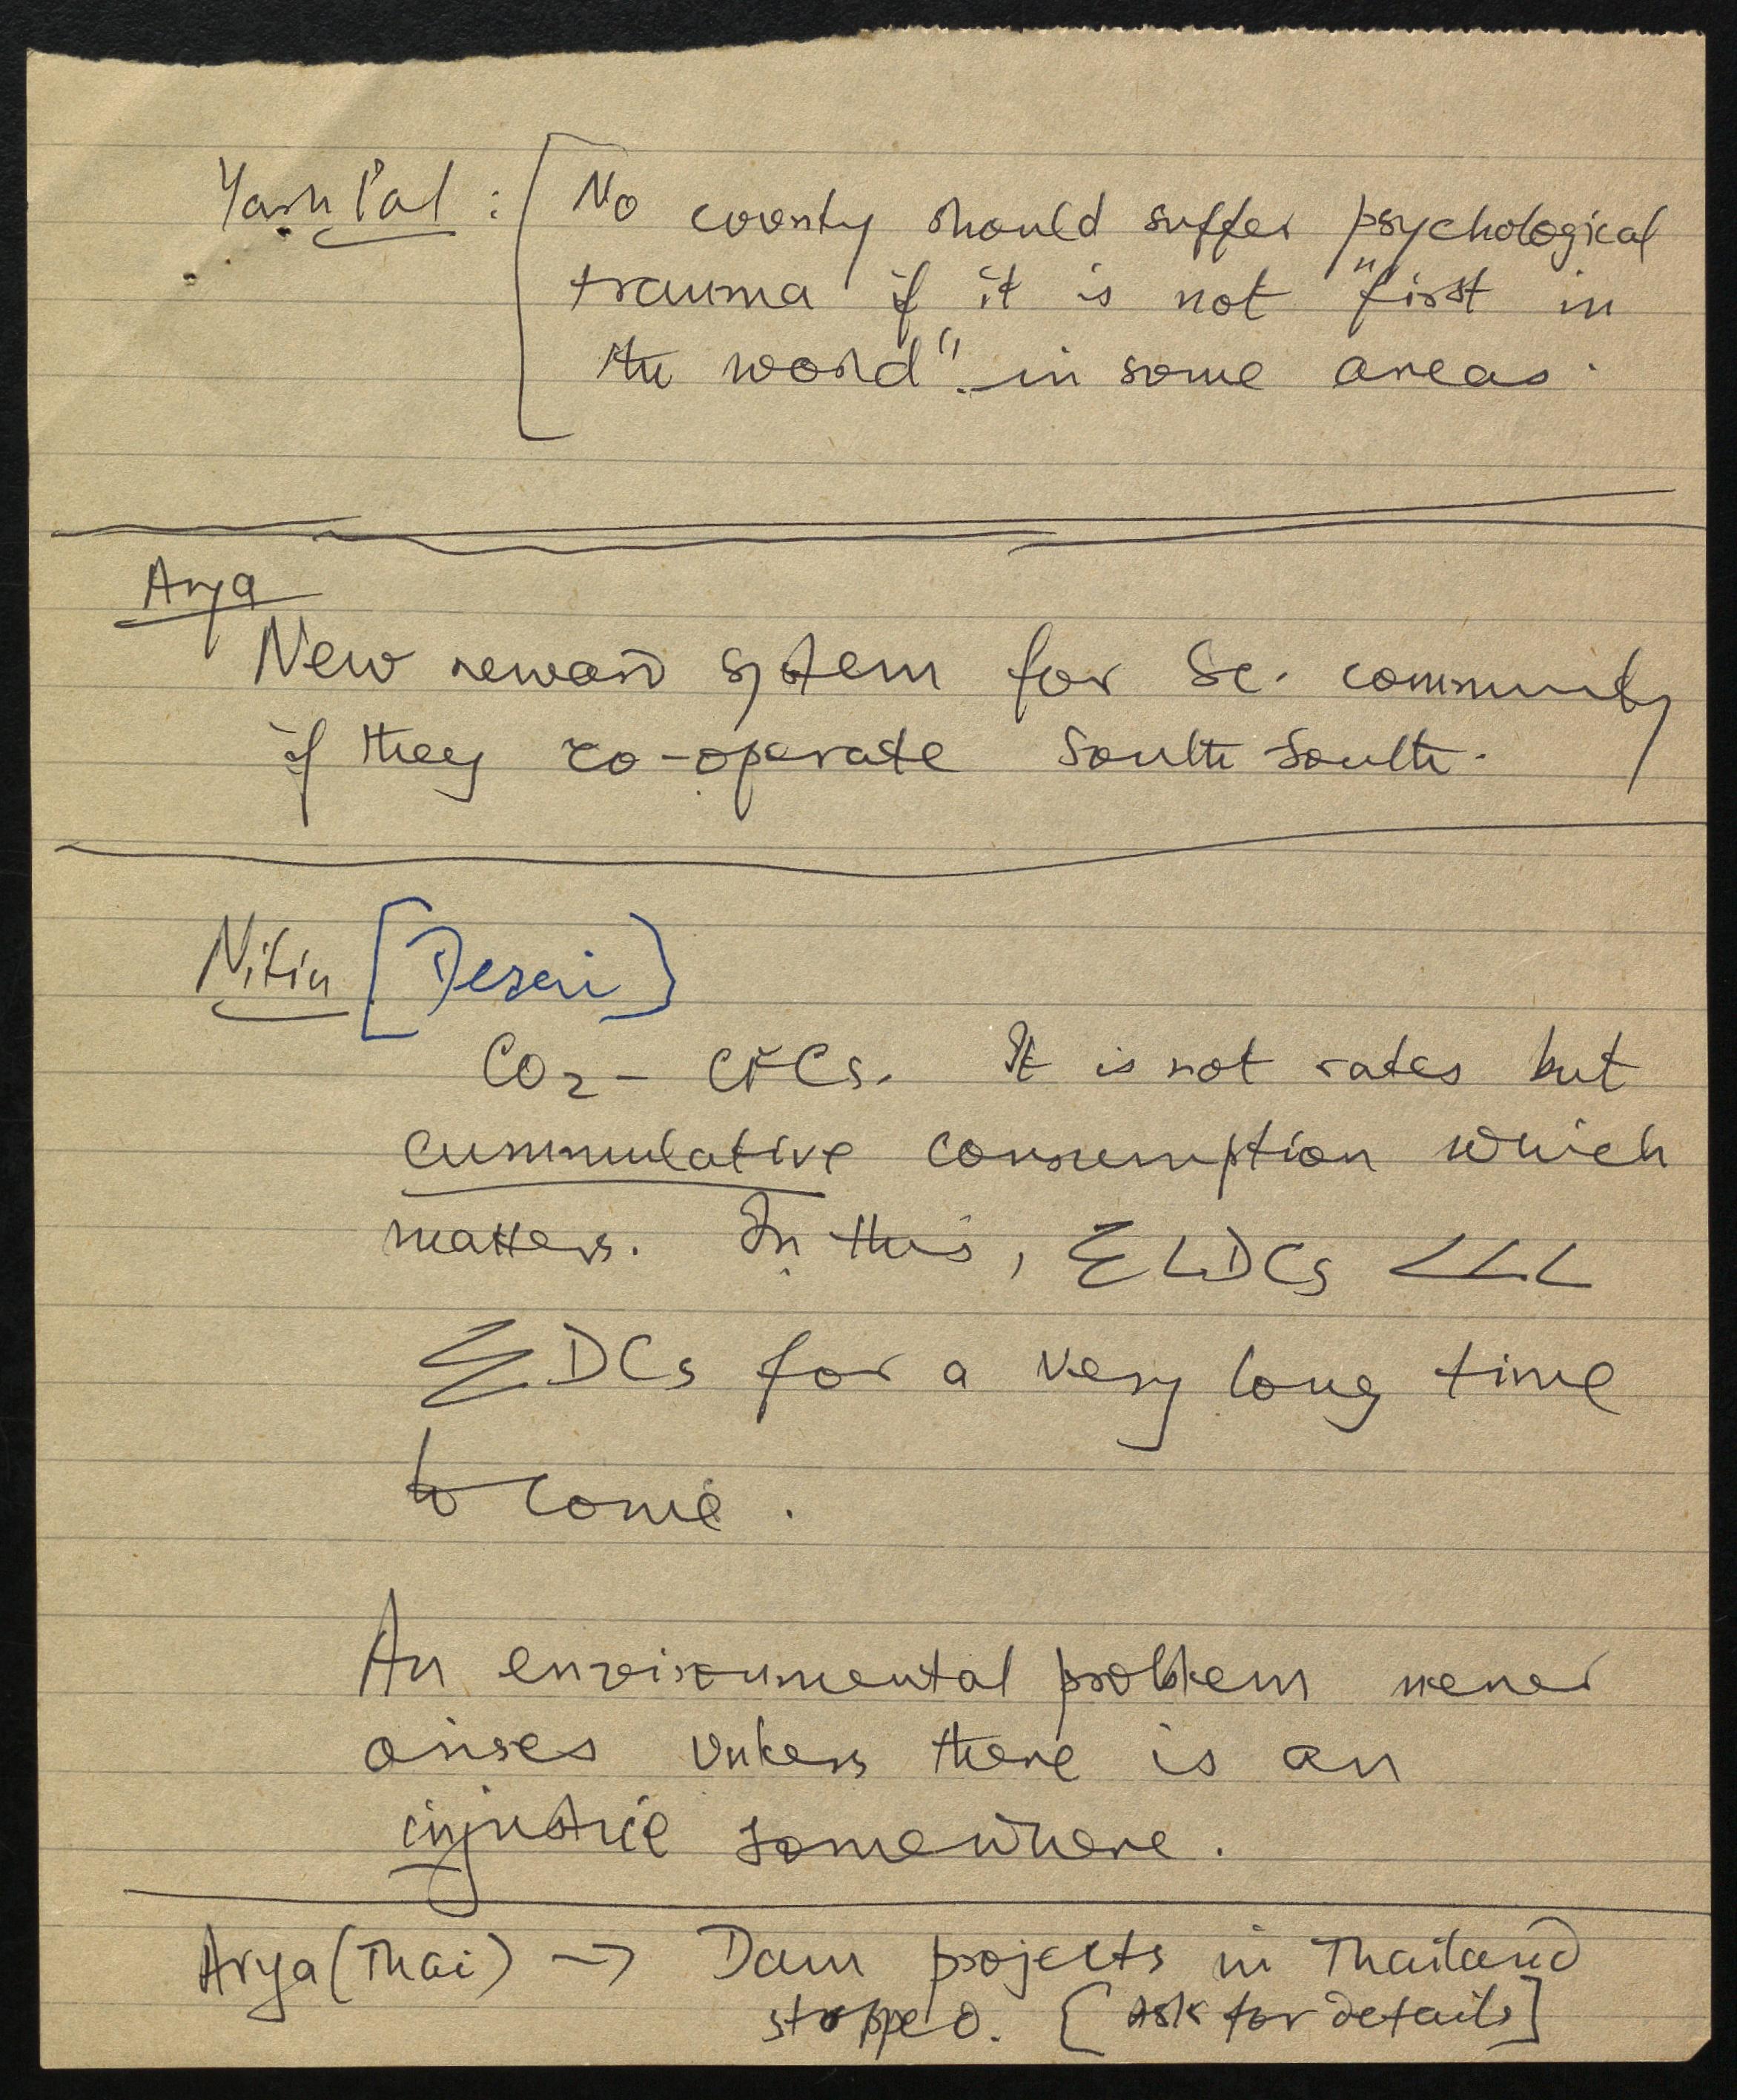 Yash Pal : [ No county should suffer psychological
trauma if it is not "first in
the world" in some areas.
Arya
New reward system for Sc. community
if they co-operate South South.
Nitin [Desai]
CO2 - CFCs. It is not rates but
cummulative consumption which
matters. In this, ΣLDCs <<<
ΣDCs for a very long time
to come.
An environmental problem never
arises unless there is an
injustice somewhere.
Arya (Thai) → Dam projects in Thailand
stopped. [Ask for details]